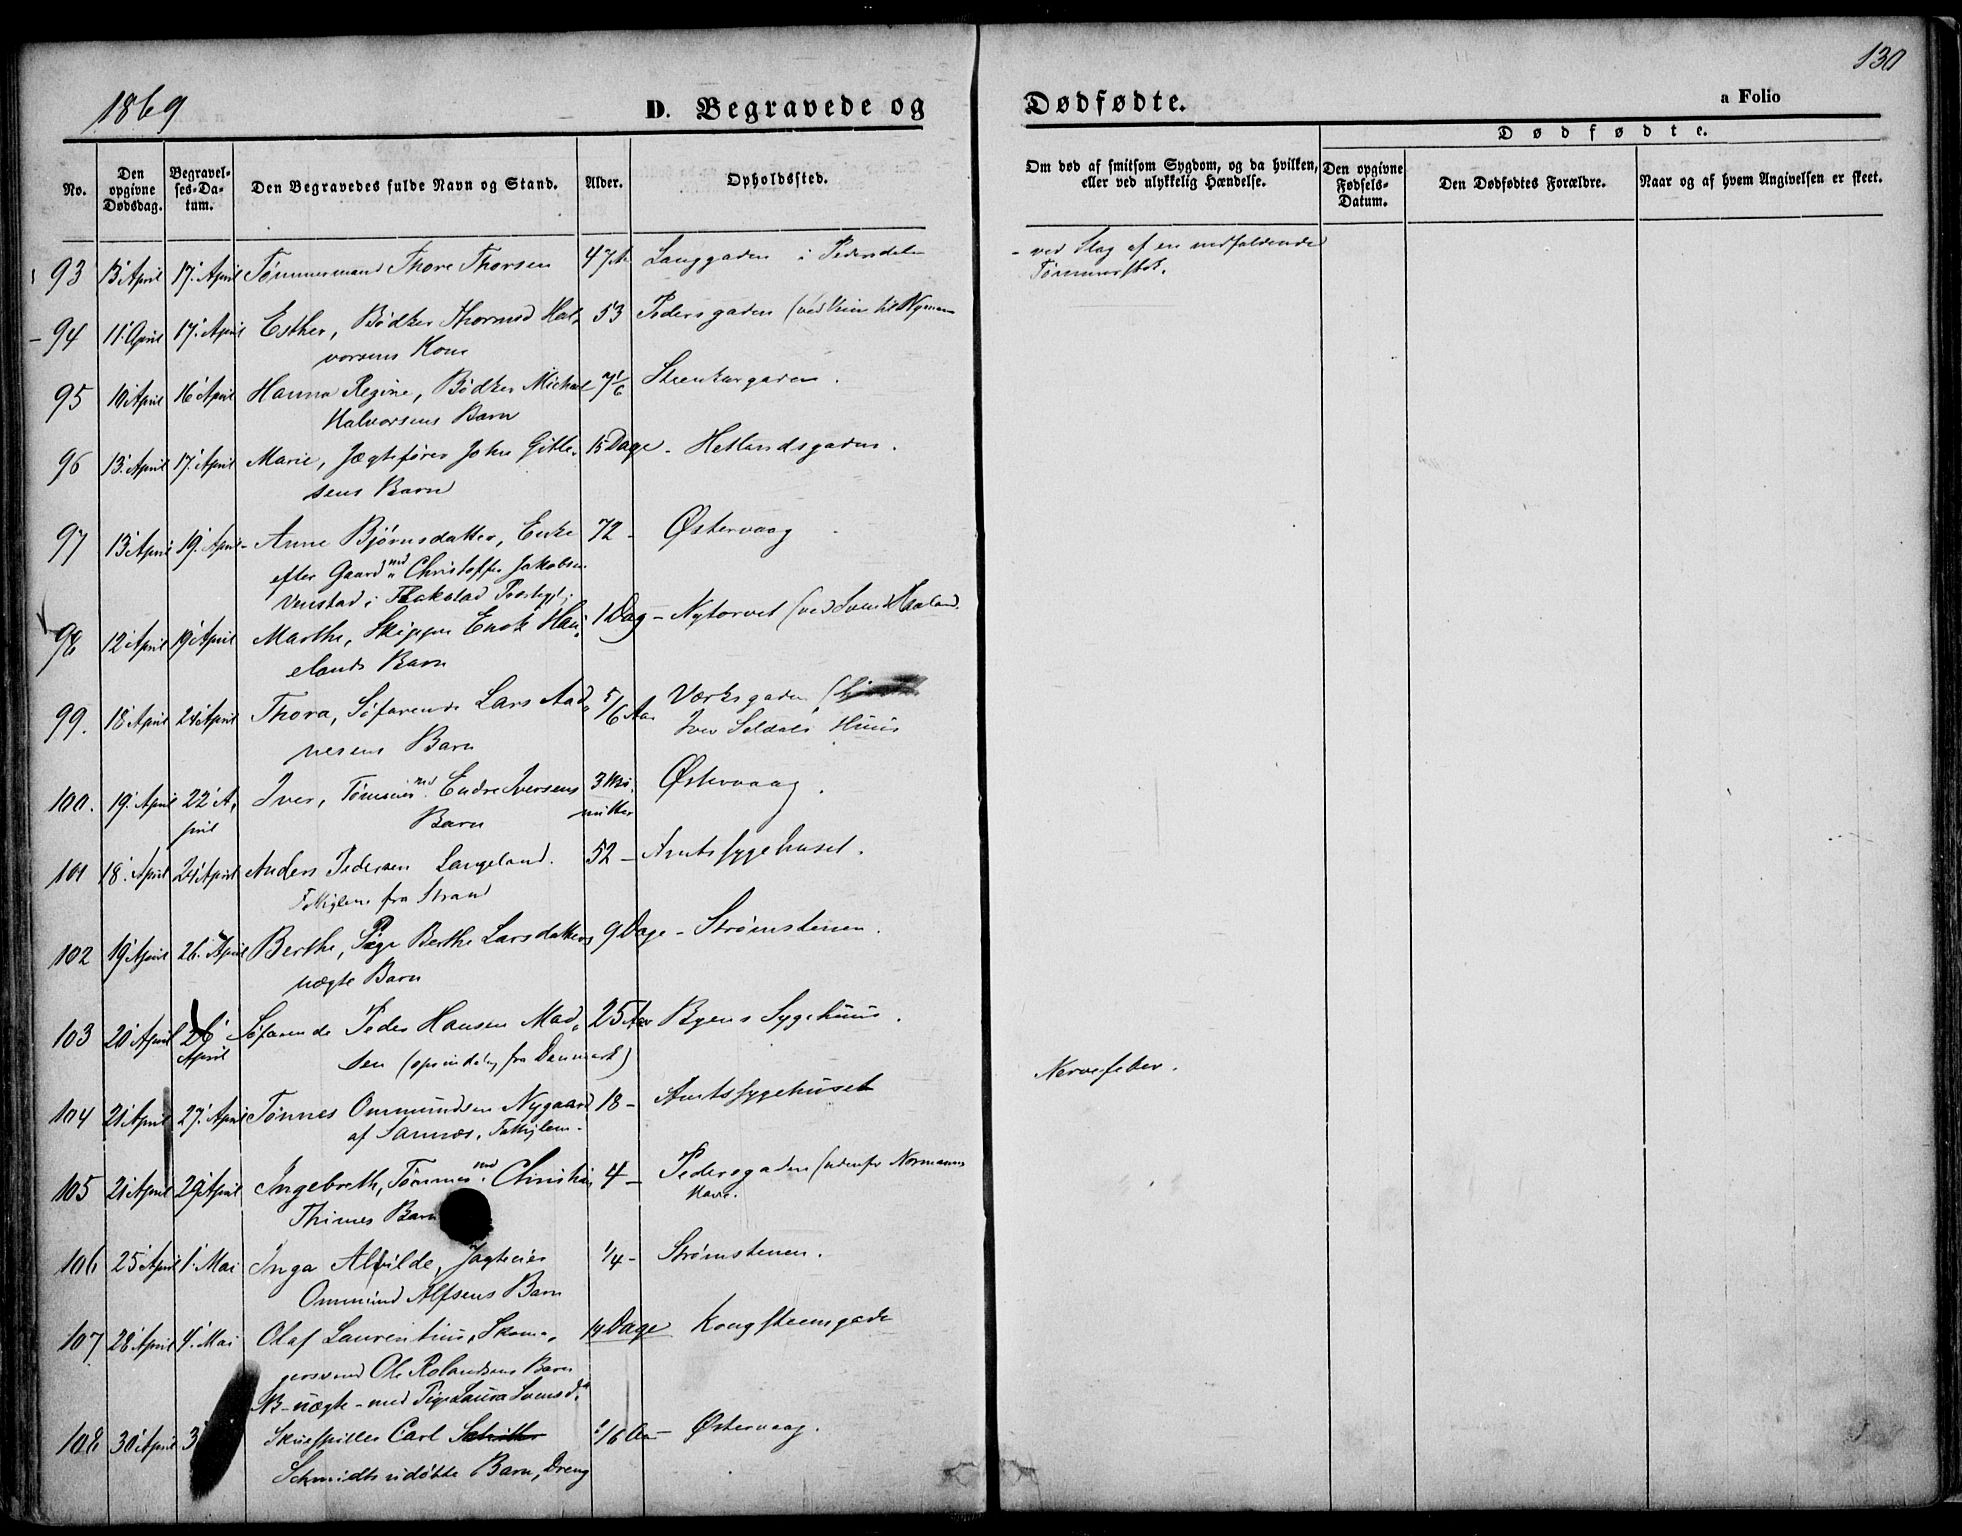 130
1869
D. Begravede og Dødfødte.
a Folio
No.
Den opgivne Dødsdag.
Begravel-ses-Da-tum.
Den Begravedes fulde Navn og Stand.
Alder.
Opholdssted.
Om død af smitsom Sygdom, og da hvilken, eller ved ulykkelig Hændelse.
Dødfødte.
Den opgivne Fødsels-Datum.
Den Dødfødtes Forældre.
Naar og af hvem Angivelsen er skeet.
93 13 April 17. April Tømmermand Thore Thorsen 47 Langgaden i Pedersdalen - ved Slag af en nedfaldende
Tømmerstok.
94 11. April 17. April Esther, Bødker Thormod Hal- 53 Pedersgaden (ved
vorsens Kone
95 10 April 16 April Hanna Regine, Bødker Michael Steenkargaden.
Halvorsens Barn
96 13. April 17. April Marie, Jægtefører John Gitle- 15 Dage - Hetlandsgaden.
sens Barn
97 13 April 19. April Anne Bjørnsdatter, Enke 72 - Østervaag
efter Gaardmd Christoffer Jakobsen
i
98 12 April 19 April Marthe, Skipper Enok Hau- 1 Dag - Nytorvet (ved Svend Haaland
elands Barn
99. 18 April 24 April Thora, Søfarende Lars Aad- 5/6 Aar Værksgaden (
nesens Barn Iver Huus
100. 19. April 22 A- Iver, Tømmermd Endre Iversens 3 Mi- Østervaag.
pril Barn nutter
101 18. April 24 April Anders Pedersen Langeland. 52 - Amtssygehuset.
Fattiglem fra Strand
102 19 April 26. April Berthe, Pige Berthe Larsdatters 9 Dage - Strømstenen.
uægte Barn
103 20 April 26 Søfarende Peder Hansen Mad- 25 Aar Byens Sygehuus.
April sen (oprindelig fra Danmark)
Nervefeber.
104 21 April 27. April Tønnes Ommundsen Nygaard 18 - Amtssygehuset
af Sannæs, Fattiglem.
105 21 April 29 April Ingebreth, Tømmermd. Christian 4 - Pedersgaden (udenfor Normanns
Thimes Barn Have.
106 25 April 1. Mai Inga Alvilde, Jagteier 1/4 - Strømstenen.
Ommund Alfsens Barn
107 28 April 4. Mai Olaf Laurentius, Skoma- 14 Dage Kongsteensgade
gersvend Ole Rolandsens Barn
NB - uægte - med Pige Laura Svensd.
108 30 April 3 Skuespiller Carl 1/6 Aar - Østervaag.
Schmidts udøbte Barn, Dreng